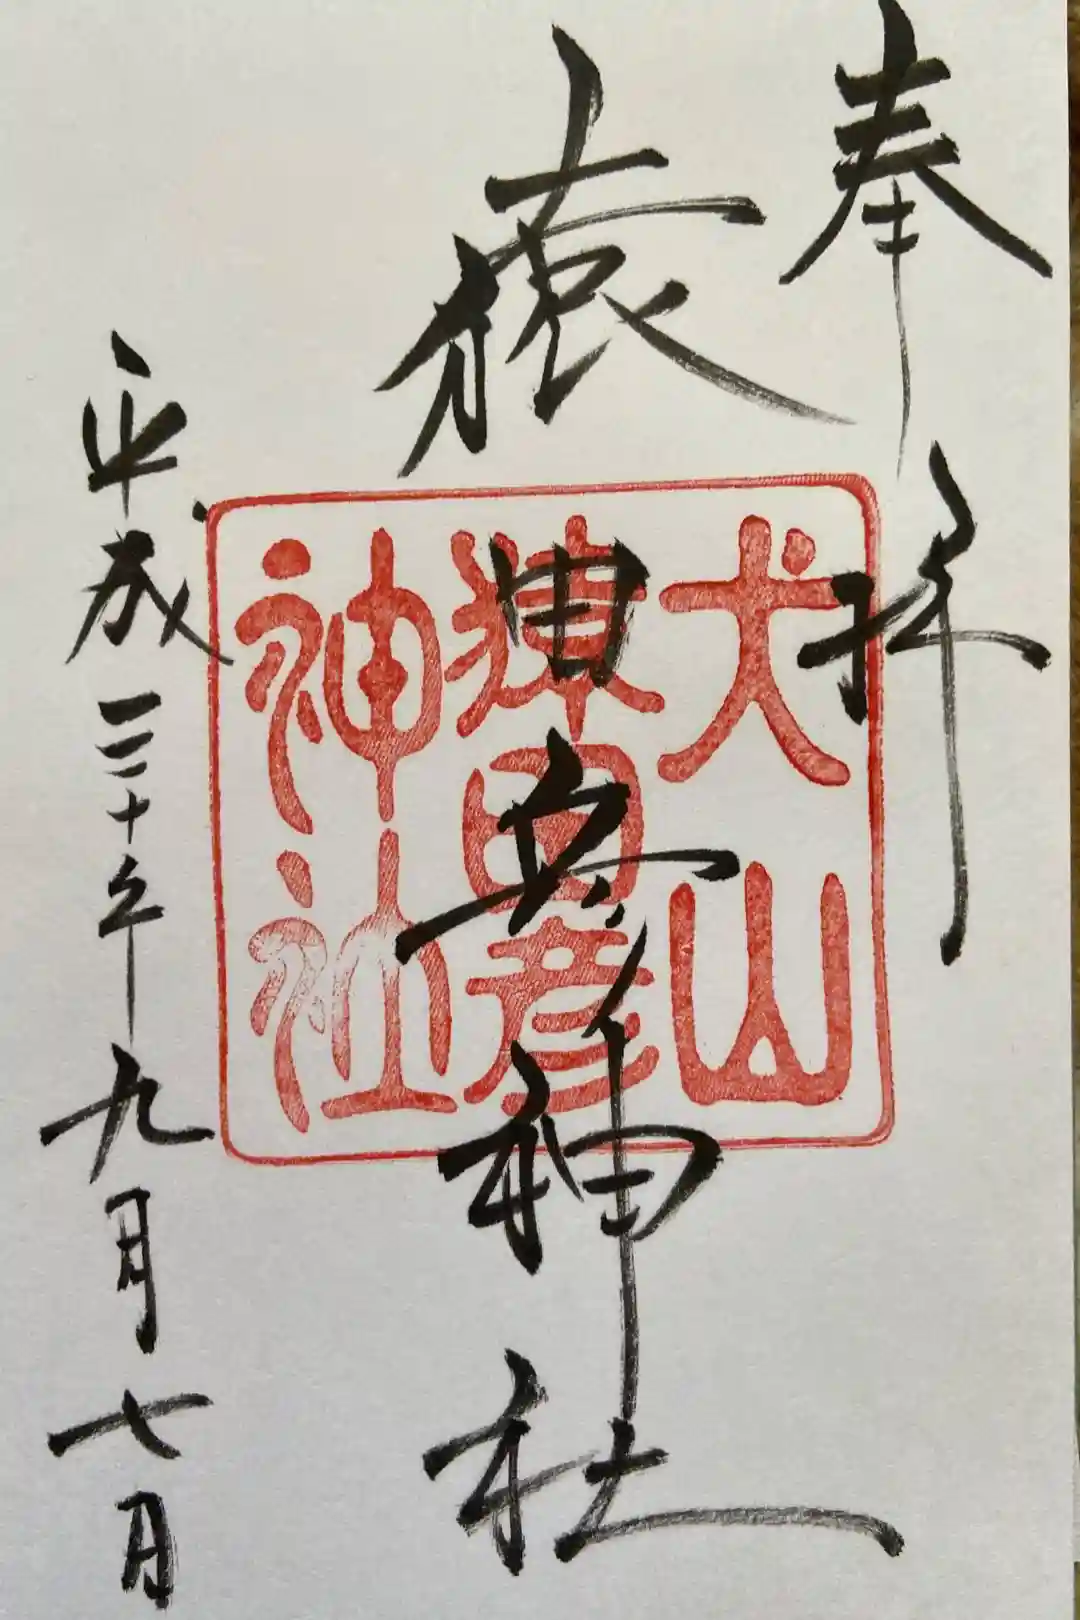 奉拝
猿田彦神社
平成三十年九月七日
犬山
猿田彦
神社